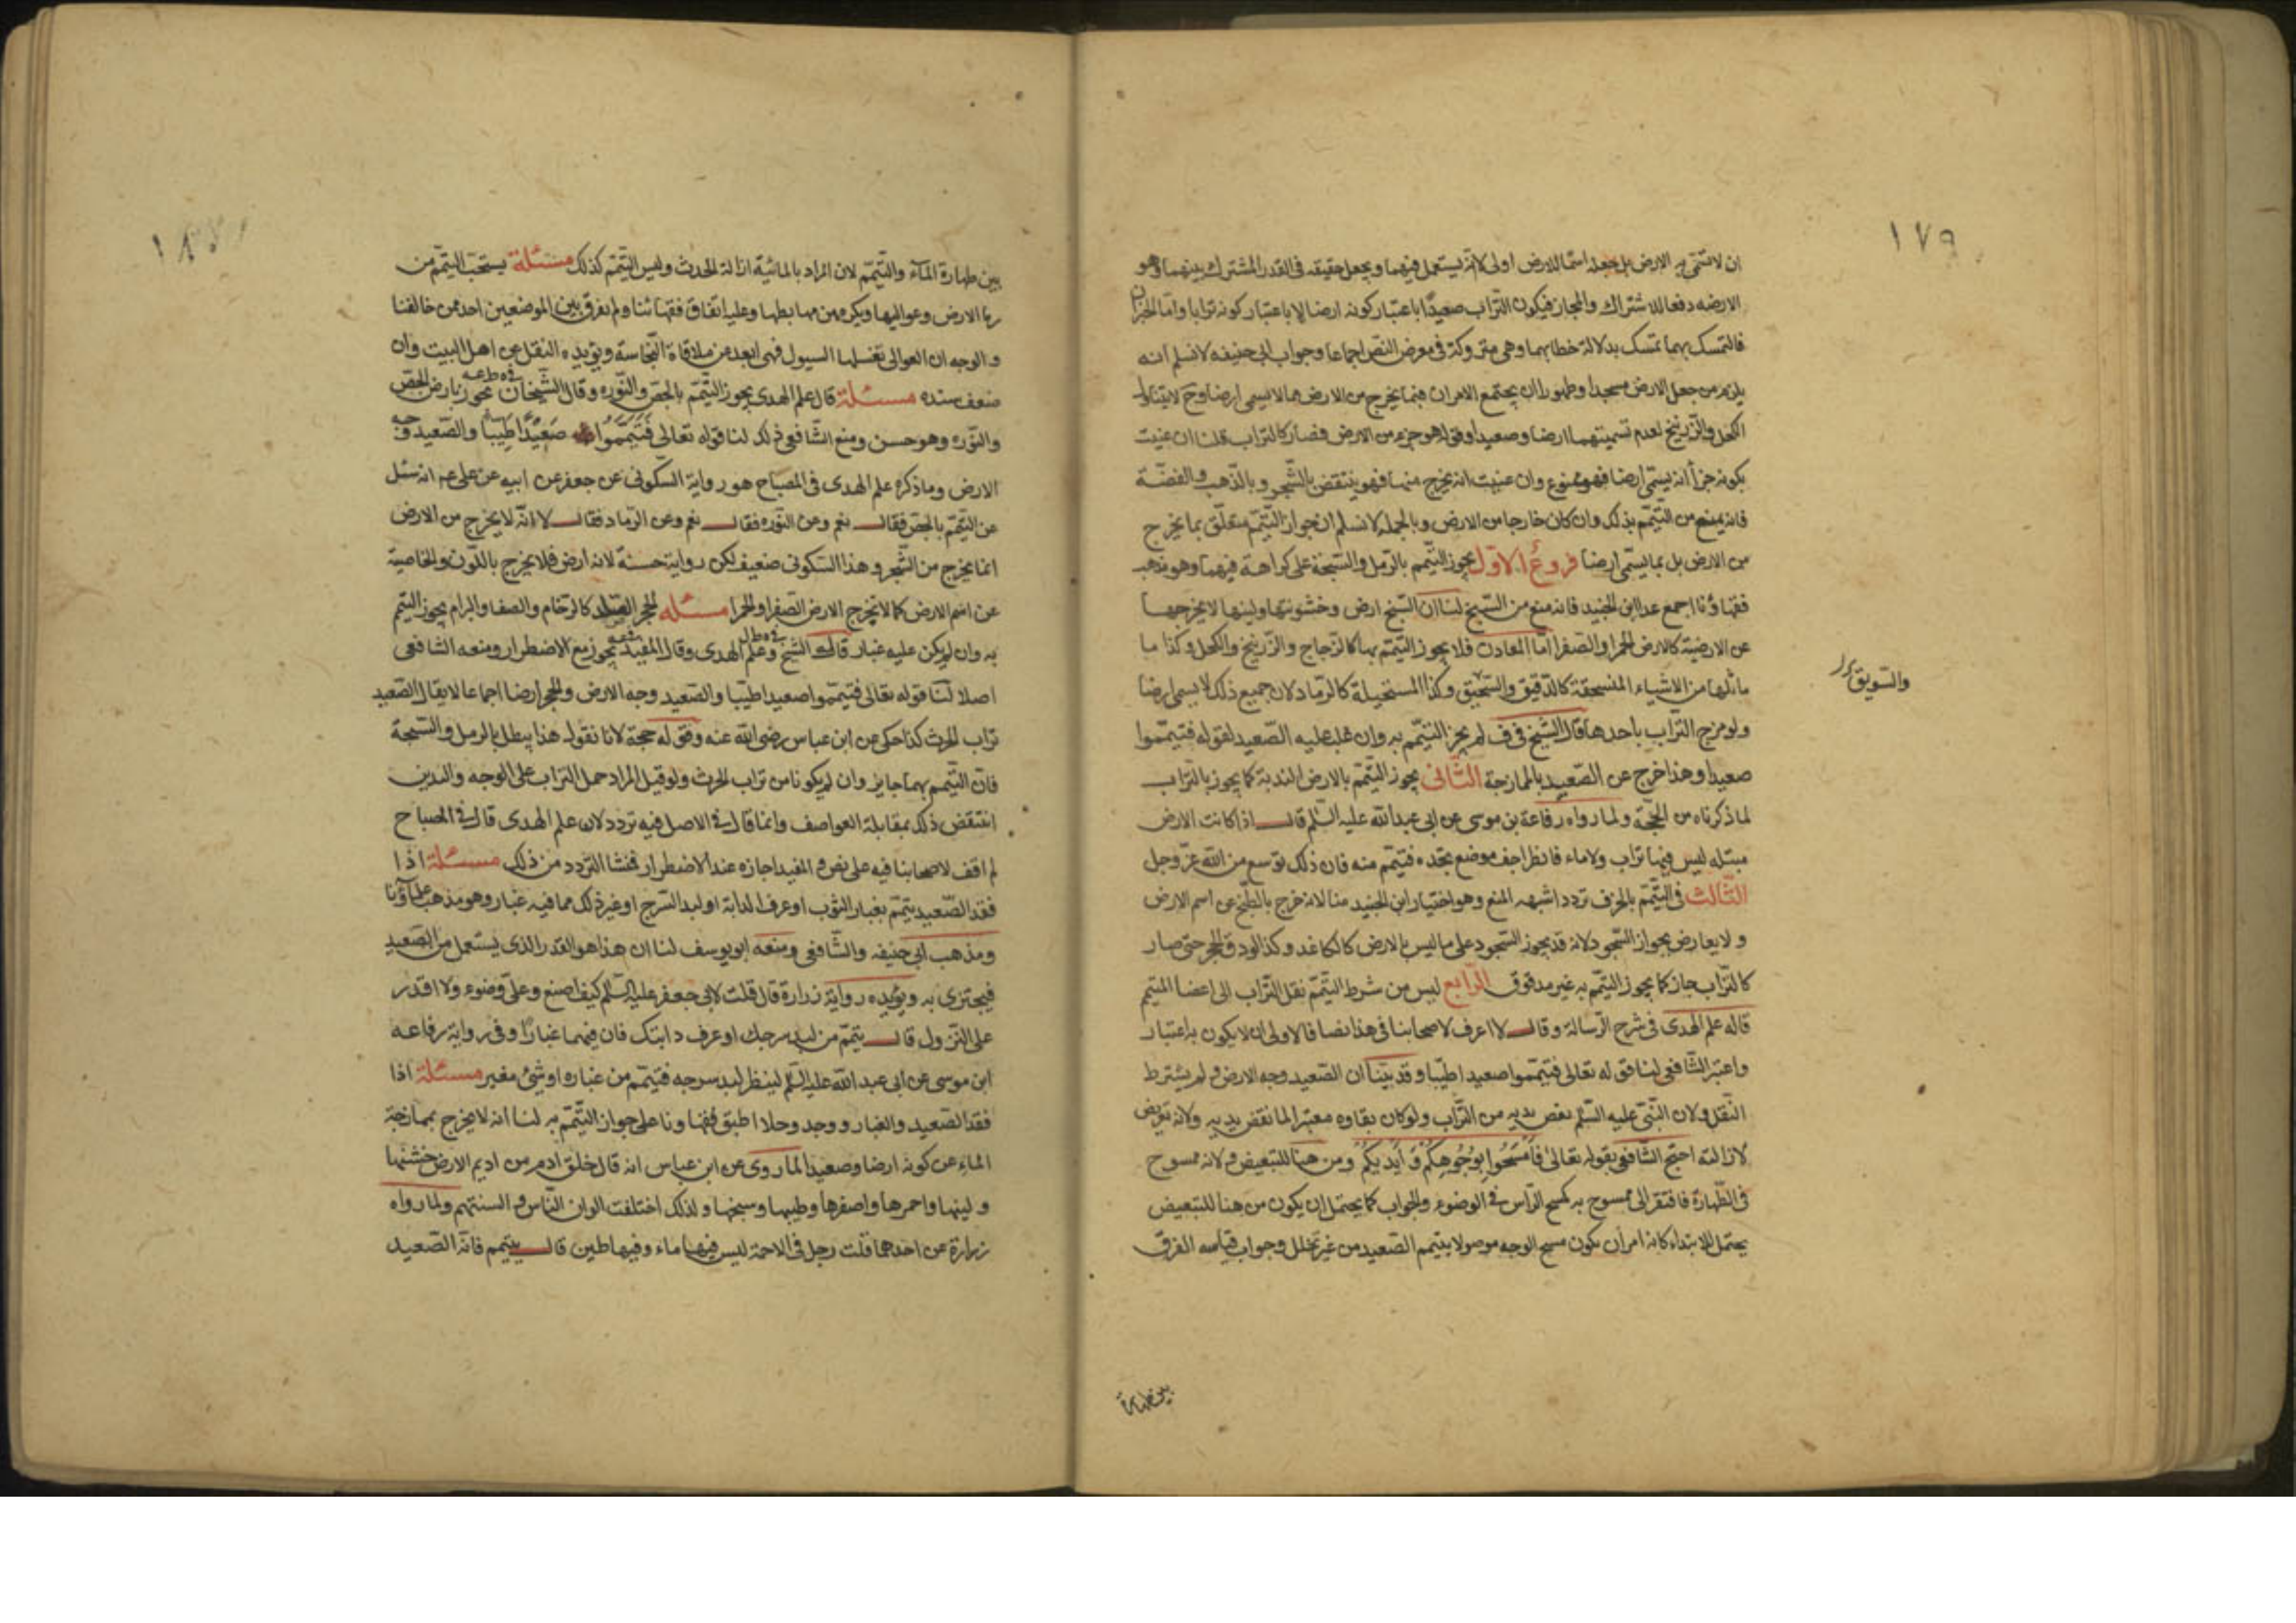 ١٧٩
ان لا تسمى به الارض بل جعله اسما للارض اولى لانه يستعمل فيهما ويجعل حقيقه فى القدر المشترك بينهما وهو
الارضه دفعا للاشتراك والمجاز فيكون التراب صعيدا باعتبار كونه ارضا لا باعتبار كونه ترابا واما الخبران
فالتمسك بهما تمسك بدلالة خطابهما وهى متروكة فى معرض النص اجماعا وجواب ابى حنيفه لا نسلم انه
يلزم من جعل الارض مسجدا وطهورا ان يجتمع الامران فيما يخرج من الارض مما لا يسمى ارضا وح لا يتناول
الكحل والزرنيخ لعدم تسميتهما ارضا وصعيدا وقوله هو جزء من الارض فصار كالتراب قلنا ان عنيت
بكونه جزأ انه يسمى ارضا فهو ممنوع وان عنيت انه يخرج منها فهو ينتقض بالشجر وبالذهب والفضة
فانه يمنع من التيمم بذلك وان كان خارجا من الارض وبالجمله لا نسلم ان جواز التيمم متعلق بما يخرج
من الارض بل بما يسمى ارضا فروع الاول يجوز التيمم بالرمل والسبخة على كراهة فيهما وهو مذهب
فقهاؤنا اجمع عدا ابن الجنيد فانه منع من السبخ لنا ان السبخ ارض وخشونتها ولينها لا يخرجها
عن الارضية كالارض الحمرا والصفرا اما المعادن فلا يجوز التيمم بها كالزجاج والزرنيخ والكحل وكذا ما
ماثلها من الاشياء المنسحقة كالدقيق والسحيق وكذا المستحيلة كالرماد لان جميع ذلك لا يسمى ارضا
والسويق
ولو مزج التراب باحدها قال الشيخ فى ف لم يجز التيمم به وان غلب عليه الصعيد لقوله فتيمموا
صعيدا وهذا خرج عن الصعيد بالممازجة الثانى يجوز التيمم بالارض الندية كما يجوز بالتراب
لما ذكرناه من الحجة ولما رواه رفاعة بن موسى عن ابى عبد الله عليه السلم قال اذا كانت الارض
مبتله ليس فيها تراب ولا ماء فانظر اجف موضع تجده فتيمم منه فان ذلك توسع من الله عز وجل
الثالث فى التيمم بالخزف تردد اشبهه المنع وهو اختيار ابن الجنيد منا لانه خرج بالطبخ عن اسم الارض
ولا يعارض بجواز السجود لانه قد يجوز السجود على ما ليس بالارض كالكاغد وكذا لو دق الحجر حتى صار
كالتراب جاز كما يجوز التيمم به غير مدقوق الرابع ليس من شرط التيمم نقل التراب الى اعضا المتيمم
قاله علم الهدى فى شرح الرسالة وقال لا اعرف لاصحابنا فى هذا نصا فالاولى ان لا يكون به اعتبار
واعتبر الشافعى لنا قوله تعالى فتيمموا صعيدا طيبا وقد بينا ان الصعيد وجه الارض ولم يشترط
النقل ولان النبى عليه السلم نفض يديه من التراب ولو كان بقاوه معتبرا لما نفض يديه ولانه تعريض
لازالته احتج الشافعى بقوله تعالى فامسحوا بوجوهكم وايديكم ومن هنا للتبعيض ولانه ممسوح
فى الطهارة فافتقر الى ممسوح به كمسح الراس فى الوضوء والجواب كما يحتمل ان يكون من هنا للتبعيض
يحتمل للابتداء كانه امر ان يكون مسح الوجه موصولا بتيمم الصعيد من غير تخلل وجواب قياسه الفرق
بين طهارة
بين طهارة الماء والتيمم لان المراد بالمائية ازالة الحدث وليس التيمم كذلك مسئلة يستحب التيمم من
ربا الارض وعواليها ويكره من مهابطها وعليه اتفاق فقهائنا ولم يفرق بين الموضعين احد ممن خالفنا
والوجه ان العوالى تغسلها السيول فهى ابعد من ملاقاة النجاسة ويؤيده النقل عن اهل البيت وان
ضعف سنده مسئلة قال علم الهدى يجوز التيمم بالجص والنوره وقال الشيخان يجوز بارض الجص
والنوره وهو حسن ومنع الشافعى ذلك لنا قوله تعالى فتيمموا صعيدا طيبا والصعيد وجه
الارض وما ذكره علم الهدى فى المصباح هو رواية السكونى عن جعفر عن ابيه عن على عم انه سئل
عن التيمم بالجص فقال نعم وعن النوره فقال نعم وعن الرماد فقال لا انه لا يخرج من الارض
انما يخرج من الشجر وهذا السكونى ضعيف لكن روايته حسنة لانه ارض فلا يخرج باللون والخاصية
عن اسم الارض كما لا تخرج الارض الصفرا والحمرا مسئله الحجر الصلد كالرخام والصفا والبرام يجوز التيمم
به وان لم يكن عليه غبار قاله الشيخ وعلم الهدى وقال المفيد يجوز مع الاضطرار ومنعه الشافعى
اصلا لنا قوله تعالى فتيمموا صعيدا طيبا والصعيد وجه الارض والحجر ارضا اجماعا لا يقال الصعيد
تراب الحرث كذا حكى عن ابن عباس رضى الله عنه وقوله حجة لانا نقول هذا يبطل بالرمل والسبخة
فان التيمم بهما جايز وان لم يكونا من تراب الحرث ولو قيل المراد حمل التراب على الوجه واليدين
انتقض ذلك بمقابلة العواصف وانما قال فى الاصل فيه تردد لان علم الهدى قال فى المصباح
لم اقف لاصحابنا فيه على نص والمفيد اجازه عند الاضطرار فنشا التردد من ذلك مسئلة اذا
فقد الصعيد يتيمم بغبار الثوب او عرف الدابة او لبد السرج او غير ذلك مما فيه غبار وهو مذهب علماؤنا
ومذهب ابى حنيفه والشافعى ومنعه ابو يوسف لنا ان هذا هو القدر الذى يستعمل من الصعيد
فيجتزى به ويؤيده رواية زرارة قال قلت لابى جعفر عليه السلم كيف اصنع وعلى وضوء ولا اقدر
على النزول قال يتيمم من لبد سرجك او عرف دابتك فان فيهما غبارا وفى رواية رفاعه
ابن موسى عن ابى عبد الله عليه السلم لينظر لبد سرجه فتيمم من غباره او شئ مغبر مسئلة اذا
فقد الصعيد والغبار ووجد وحلا اطبق فقهاونا على جواز التيمم به لنا انه لا يخرج بممازجة
الماء عن كونه ارضا وصعيدا لما روى عن ابن عباس انه قال خلق ادم من اديم الارض خشنها
ولينها واحمرها واصفرها وطيبها وسبخها ولذلك اختلفت الوان الناس والسنتهم ولما رواه
زرارة عن احدهما قلت رجل فى الاجمة ليس فيها ماء وفيها طين قال يتيمم فانه الصعيد